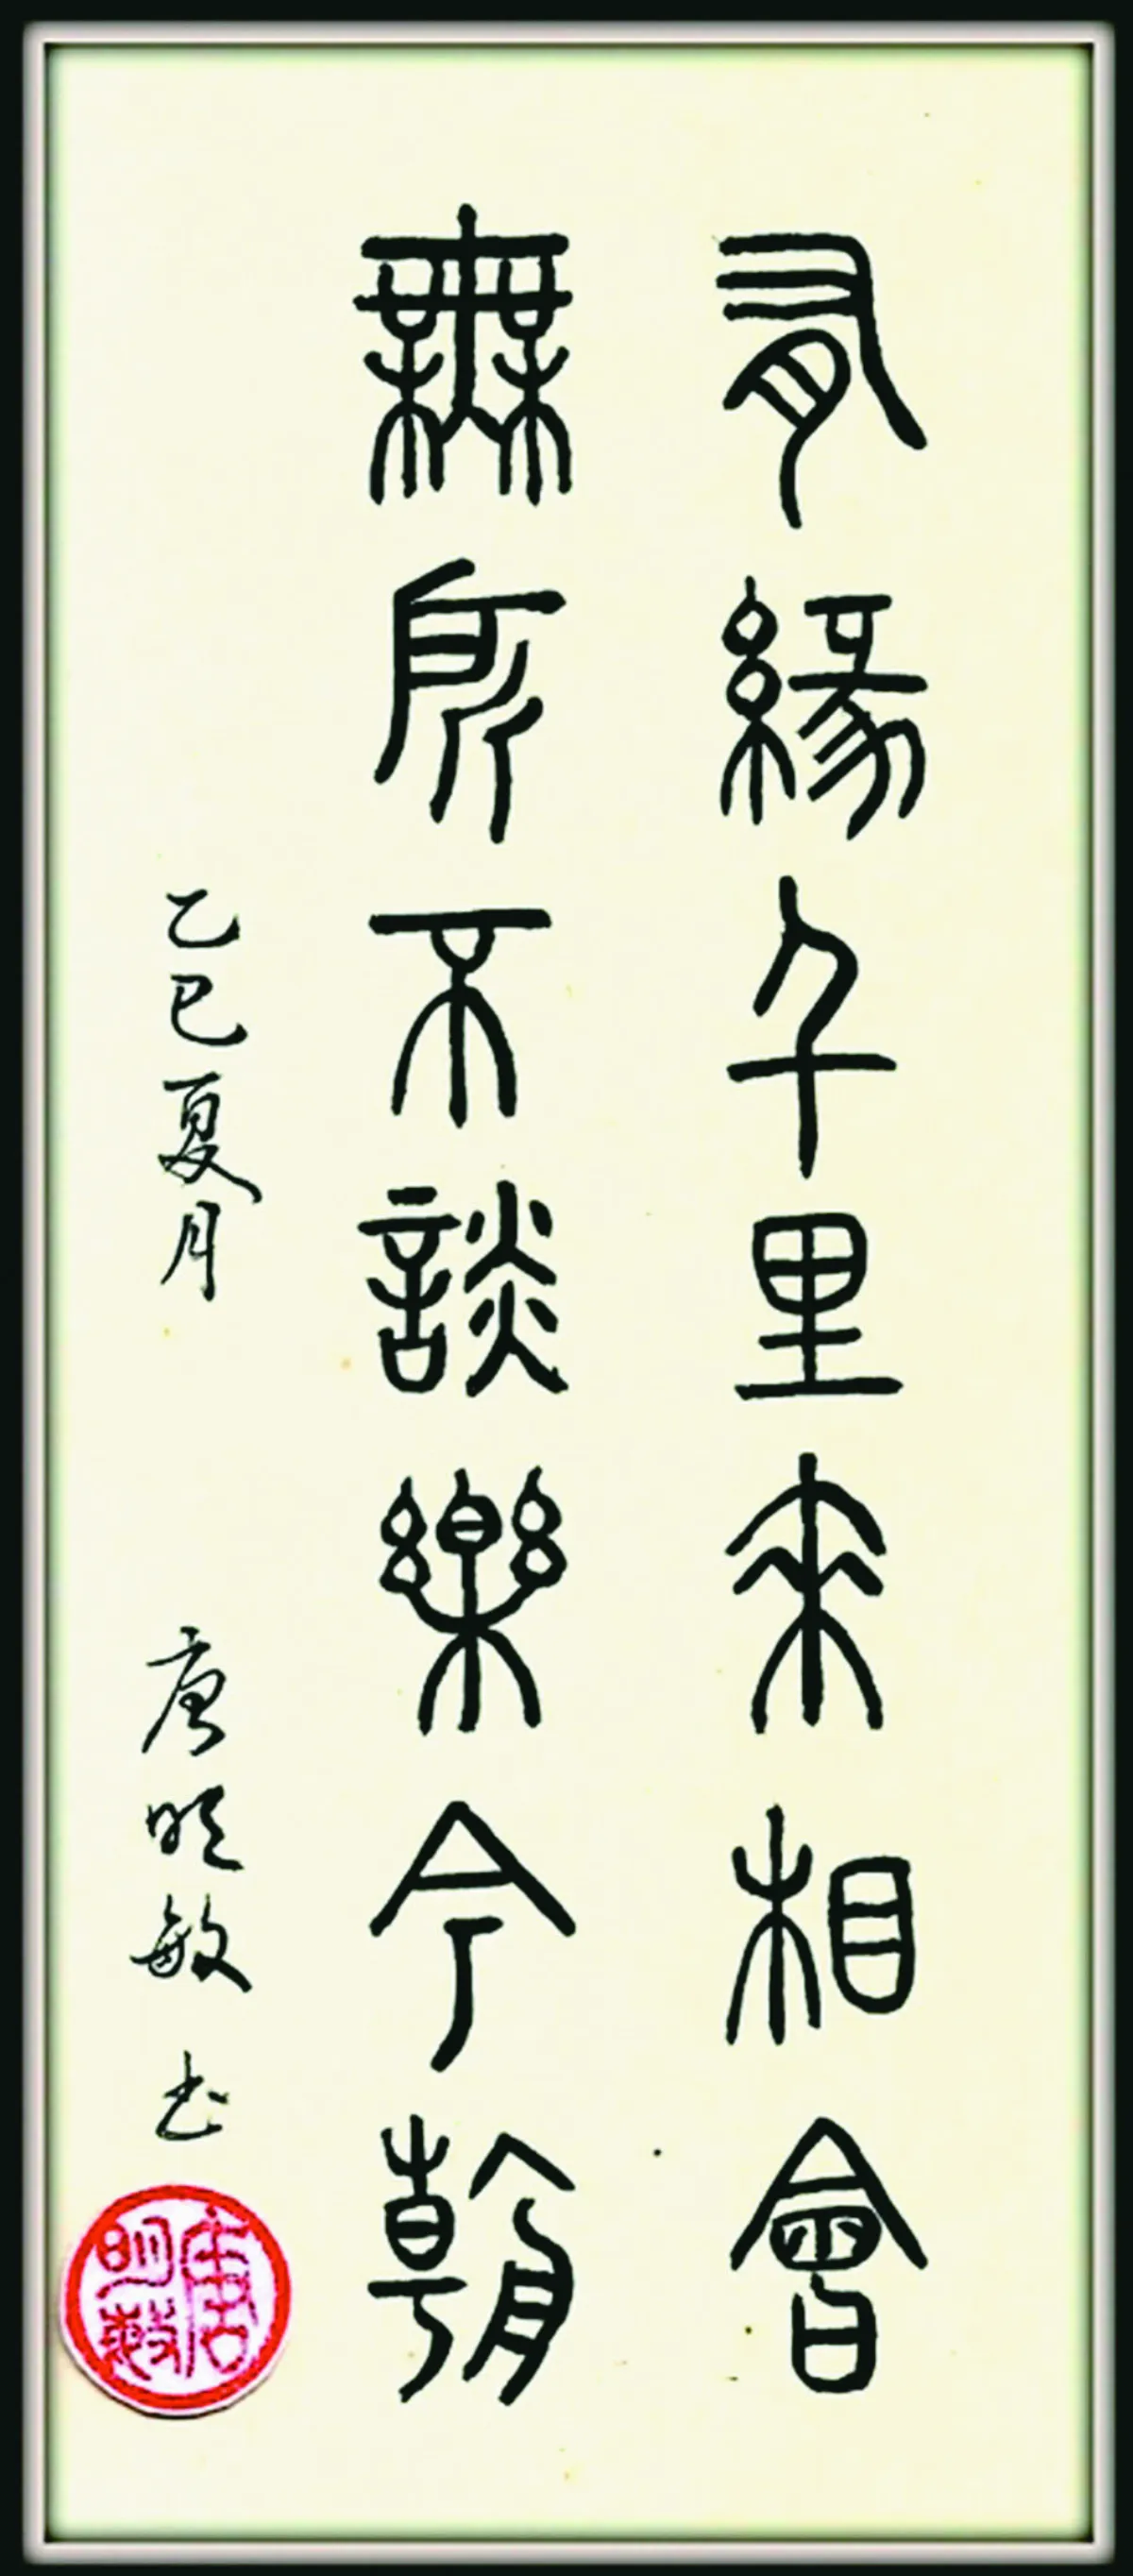 有緣千里來相會
無所不談樂今朝
乙巳夏月 唐明敏书
唐明敏